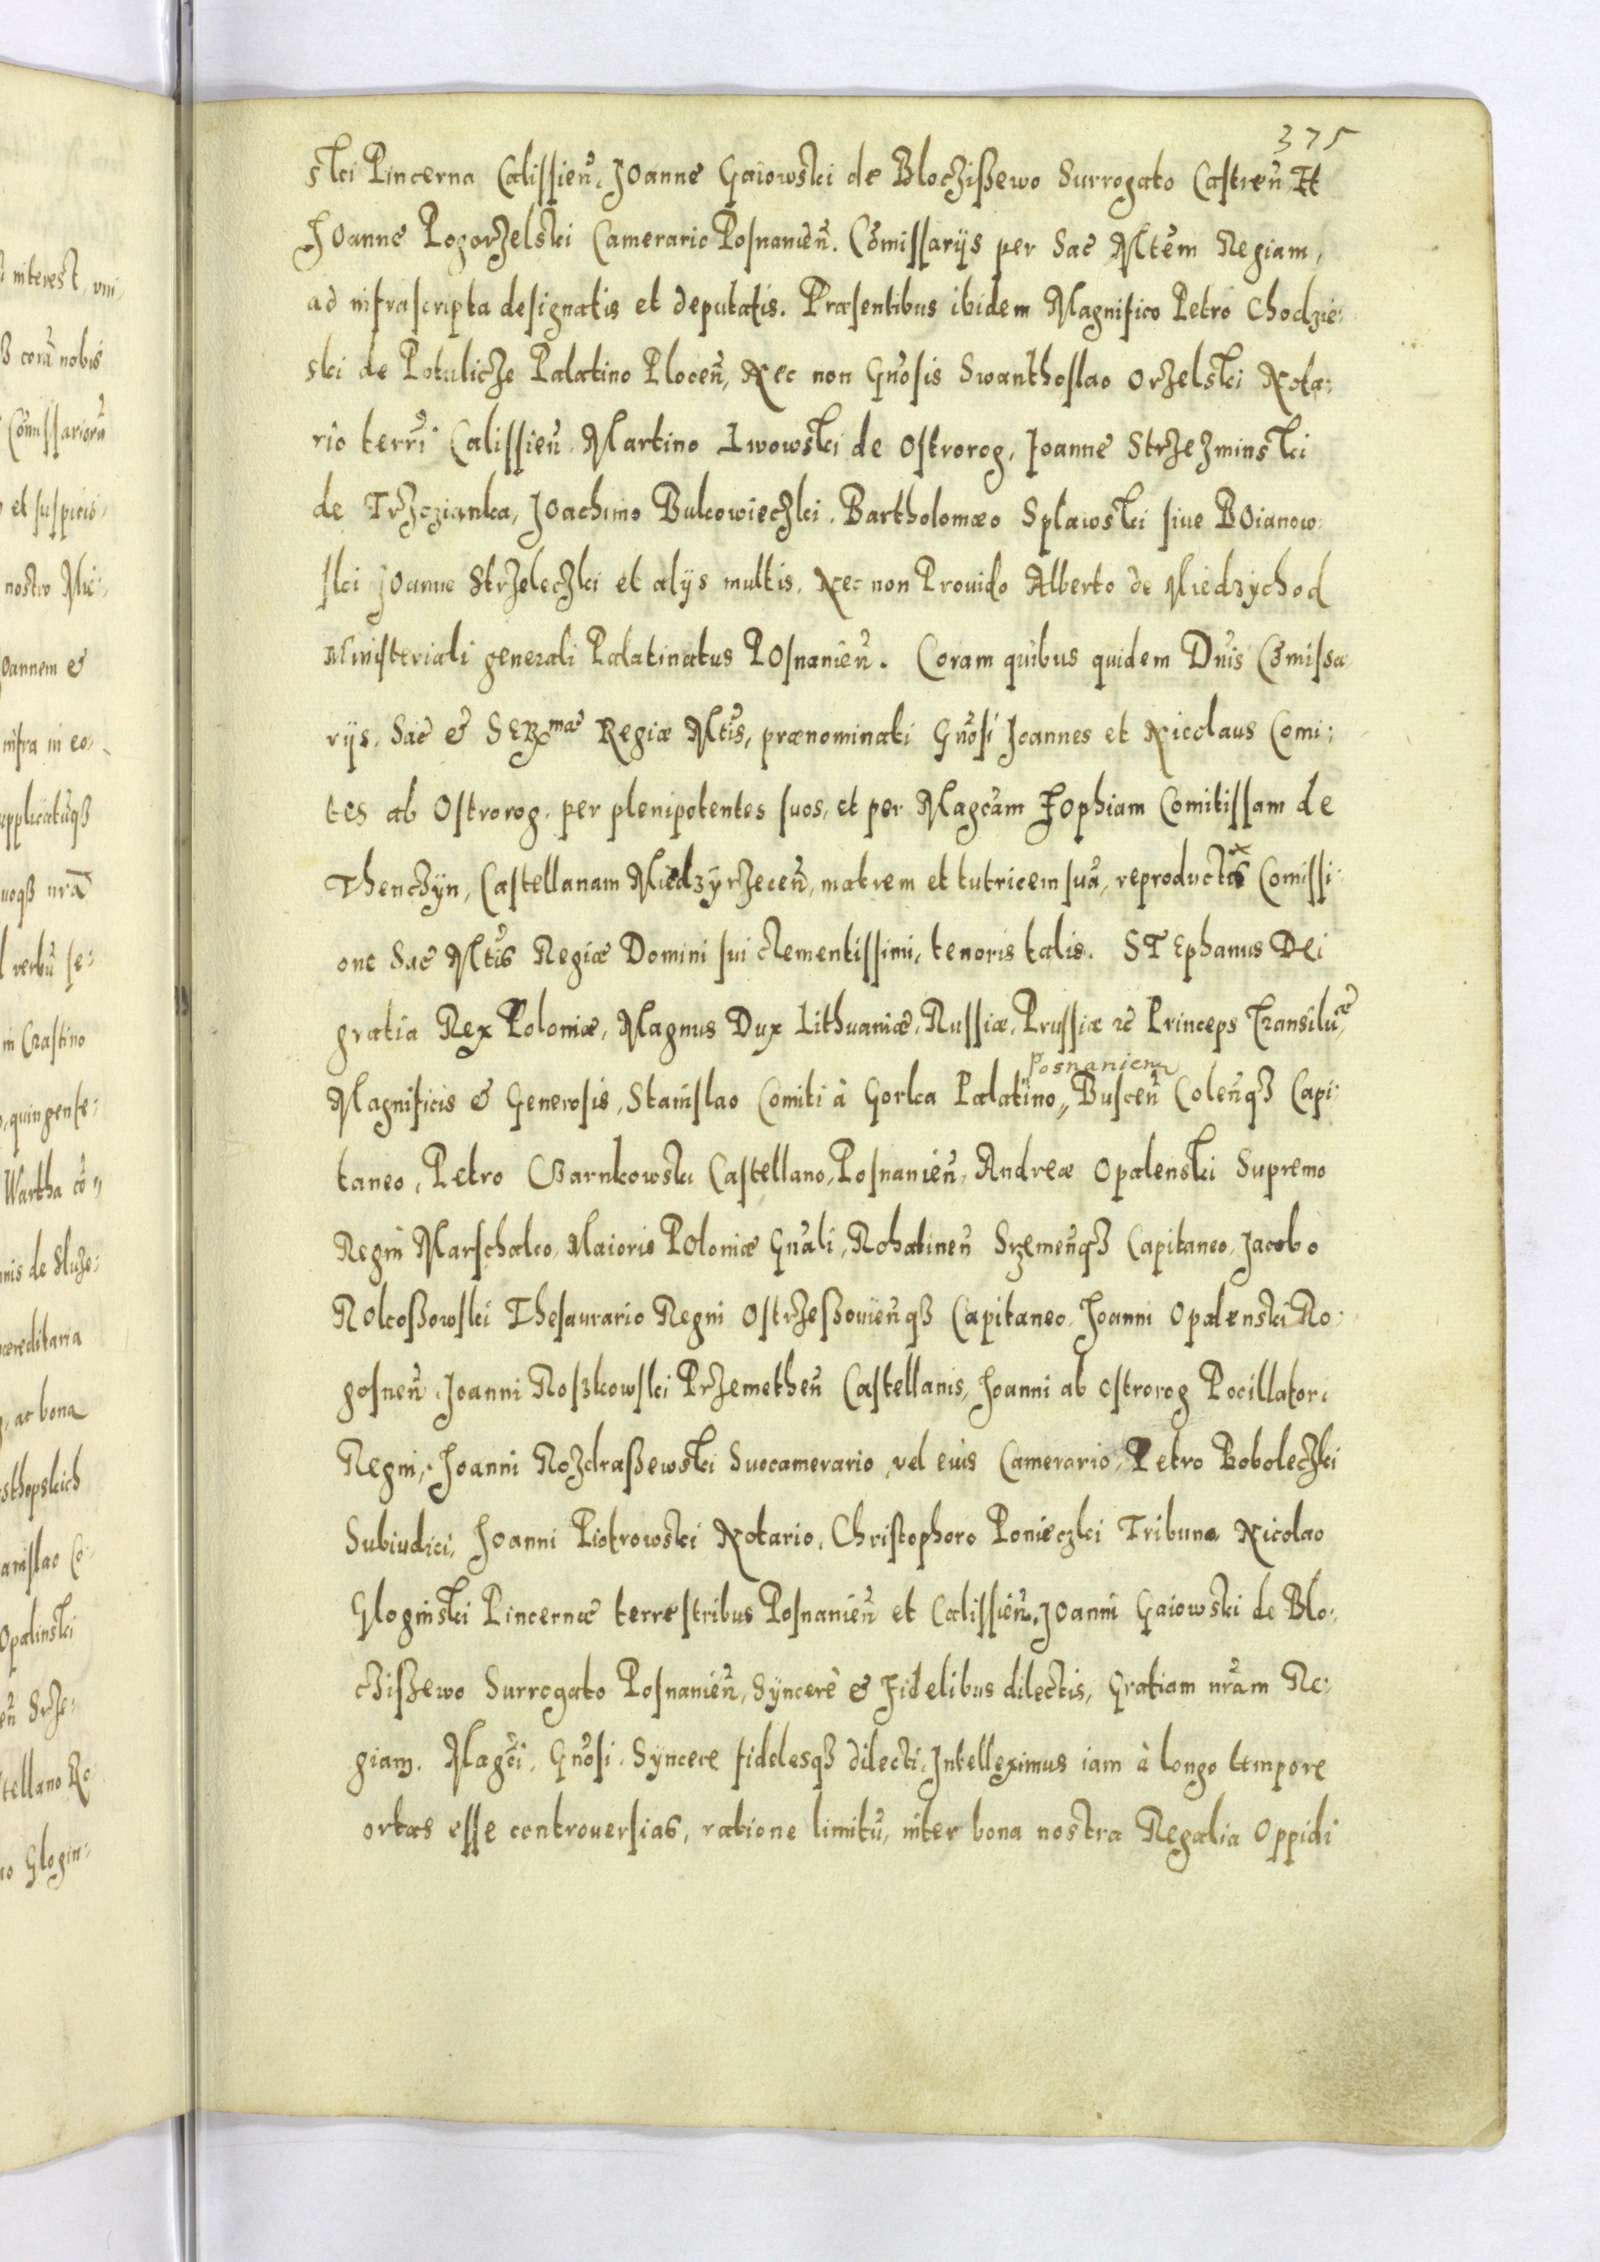 375
ski Pincerna Calissien̄, Joanne Gaiowski de Bloczißewo Surrogato Castren̄ Et
Joanne Pogorzelski Camerario Posnanien̄. Com̄issarijs per Sac̄ Mtēm Regiam,
ad infrascripta designatis et deputatis. Præsentibus ibidem Magnifico Petro Chodzie:
ski de Potulicze Palatino Plocen̄, Nec non Gn̄osis Swanthoslao Orzelski Nota:
rio terrī Calissien̄ Martino Lwowski de Ostrorog, Joanne Strzezminski
de Trzczianka, Joachimo Bukowieczki. Bartholomæo Splawski siue Boianow:
ski Joanne Strzeleczki et alijs multis. Nec non Prouido Alberto de Miedzychod
Ministeriali generali Palatinatus Posnanien̄. Coram quibus quidem Dn̄is Com̄issa
rijs. Sac̄ & SERmæ Regiæ Mtīs, prænominati Gn̄osi Joannes et Nicolaus Comi:
tes ab Ostrorog. per plenipotentes suos, et per Magcām Zophiam Comitissam de
Thenczÿn, Castellanam Miedzyrzecen̄, matrem et tutricem suā, reproducta Comissi:
one Sac̄ Mtīs Regiæ Domini sui clementissimi, tenoris talis. STEphanus DEi
gratia Rex Poloniæ, Magnus Dux Lithuaniæ, Russiæ, Prussiæ &c̄ Princeps Transiluæ,
Posnanien̄
Magnificis & Generosis, Stanislao Comiti à Gorka Palatino,, Buscen̄ Colen̄qß Capi:
taneo, Petro Czarnkowski Castellano, Posnanien̄, Andreæ Opalenski Supremo
Regni Marschalco, Maioris Poloniæ Gn̄ali, Rohatinen̄ Srzemen̄qß Capitaneo, Jacobo
Rokoßowski Thesaurario Regni Ostrzeßouien̄qß Capitaneo. Joanni Opalenski Ro:
gosnen̄, Joanni Roszkowski Przemethen̄ Castellanis, Joanni ab Ostrorog Pocillatori
Regni, Joanni Rozdraßewski Succamerario, vel eius Camerario, Petro Boboleczki
Subiudici, Joanni Piotrowski Notario, Christophoro Ponieczki Tribuno Nicolao
Gloginski Pincernæ terrestribus Posnanien̄ et Calissien̄. Joanni Gaiowski de Blo:
czißewo Surrogato Posnanien̄, Sÿncerè & Fidelibus dilectis, Gratiam nr̄am Re:
giam. Magcī, Gn̄osi. Sÿncere fidelesqß dilecti. Intelleximus iam à longo tempore
ortas esse controuersias, ratione limitū, inter bona nostra Regalia Oppidi